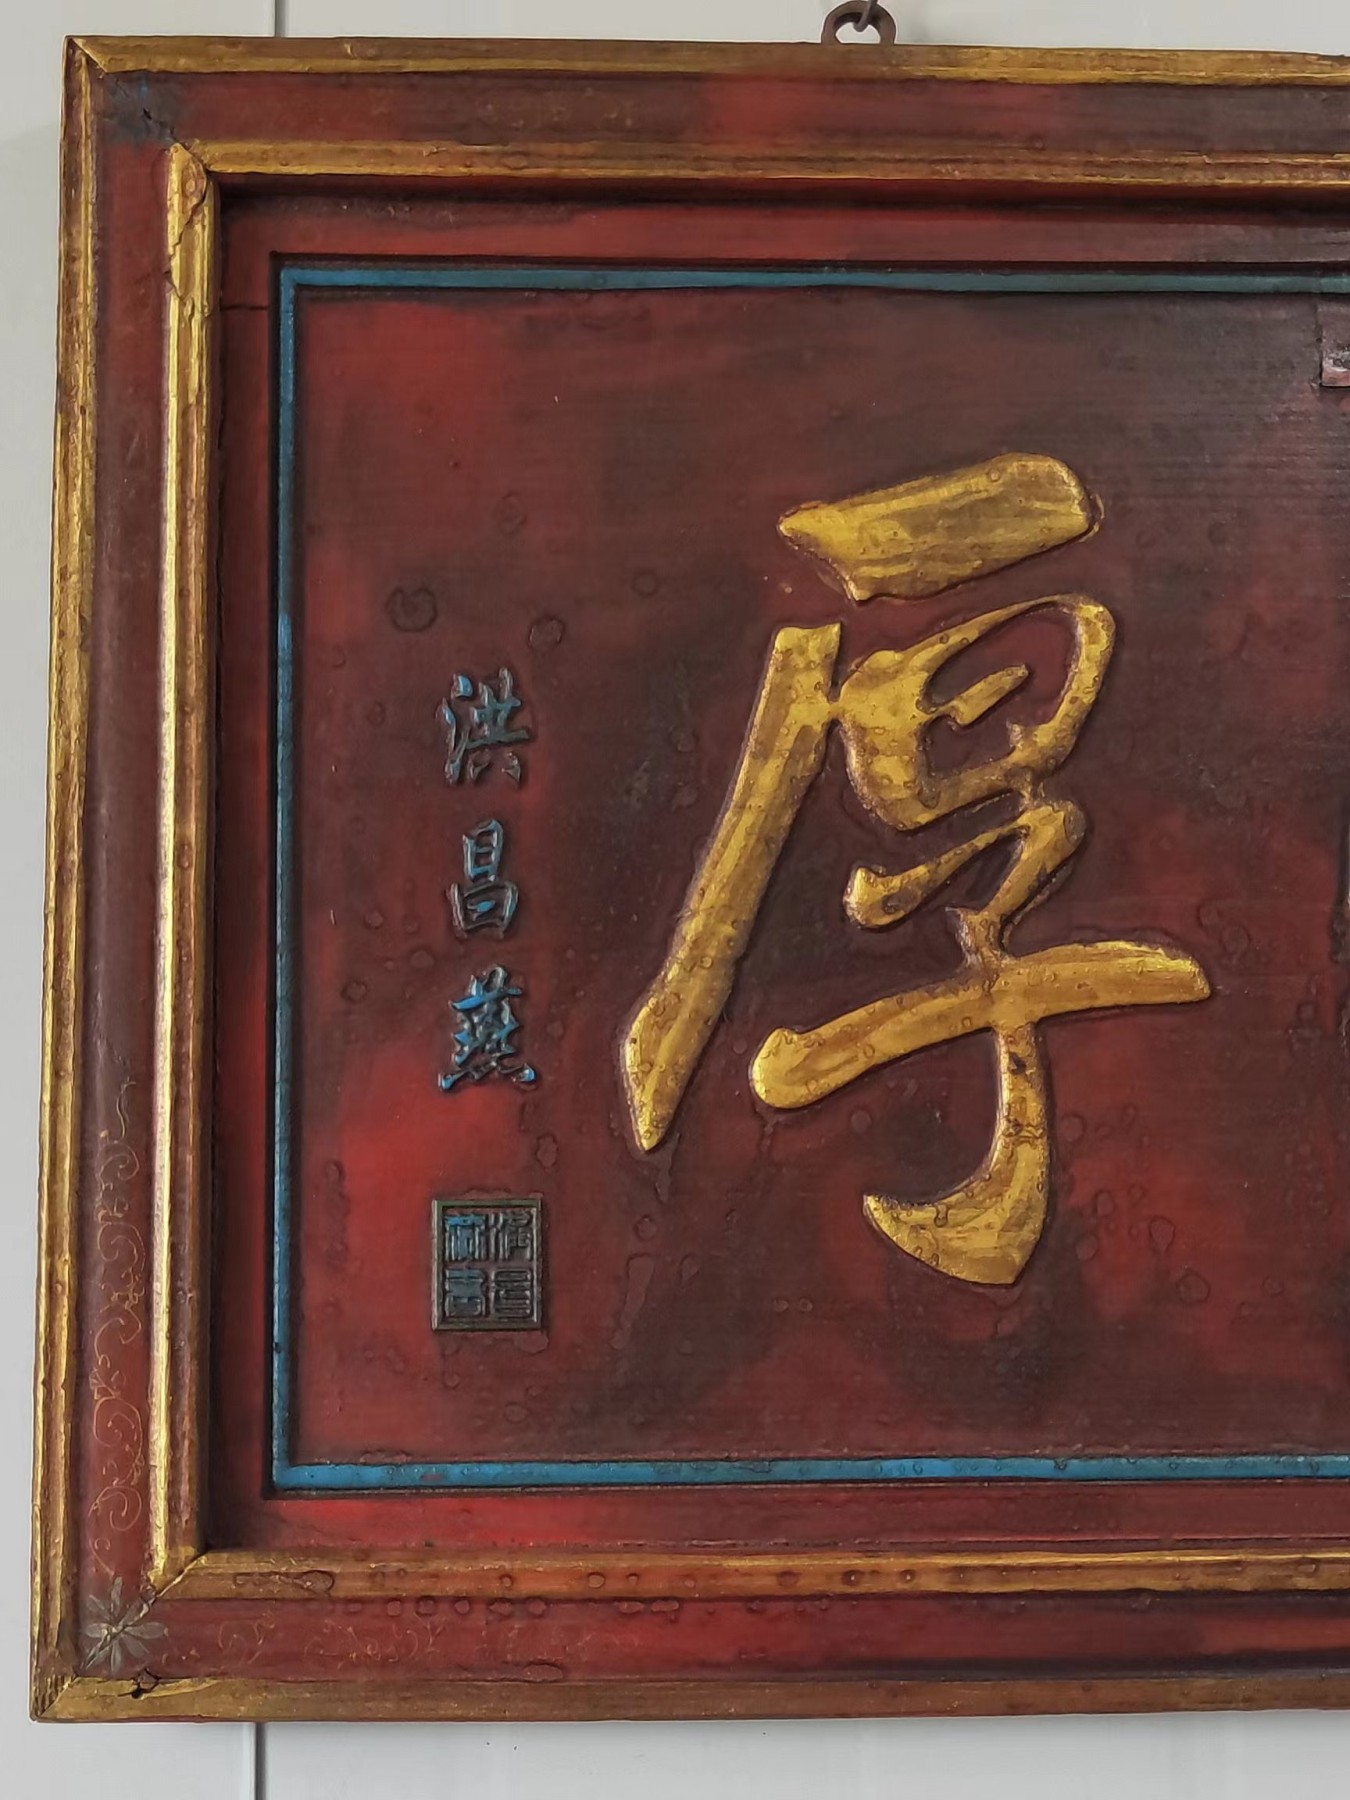 厚
洪昌燕